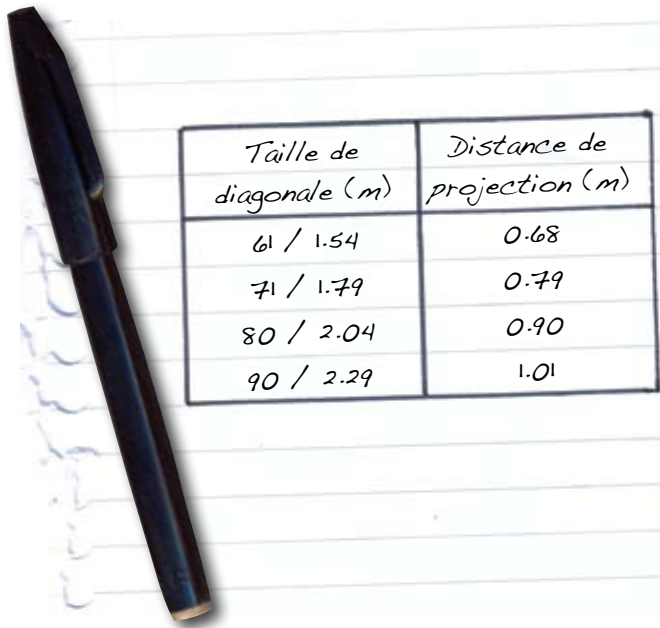 Taille de diagonale (m) Distance de projection (m)
61 / 1.54 0.68
71 / 1.79 0.79
80 / 2.04 0.90
90 / 2.29 1.01